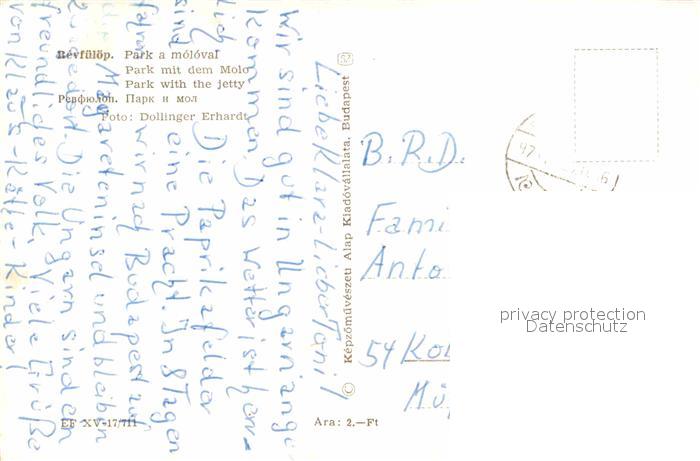 Révfülöp. Park a mólóval
Park mit dem Molo
Park with the jetty
Ревфюлоп. Парк и мол
Foto: Dollinger Erhardt
Liebe Klara - Lieber Toni!
Wir sind gut in Ungarn ange
kommen. Das Wetter ist herr-
lich. Die Paprikafelder
sind eine Pracht. In 8 Tagen
fahren wir nach Budapest zur
Margareteninsel und bleiben
dort. Die Ungarn sind ein
freundliches Volk. Viele Grüße
von Klaus - Käthe - Kinder!
© Képzőművészeti Alap Kiadóvállalata, Budapest
B.R.D.
Fami
Anto
54 Kob
Mü
privacy protection
Datenschutz
EF XV-17/711
Ára: 2.—Ft